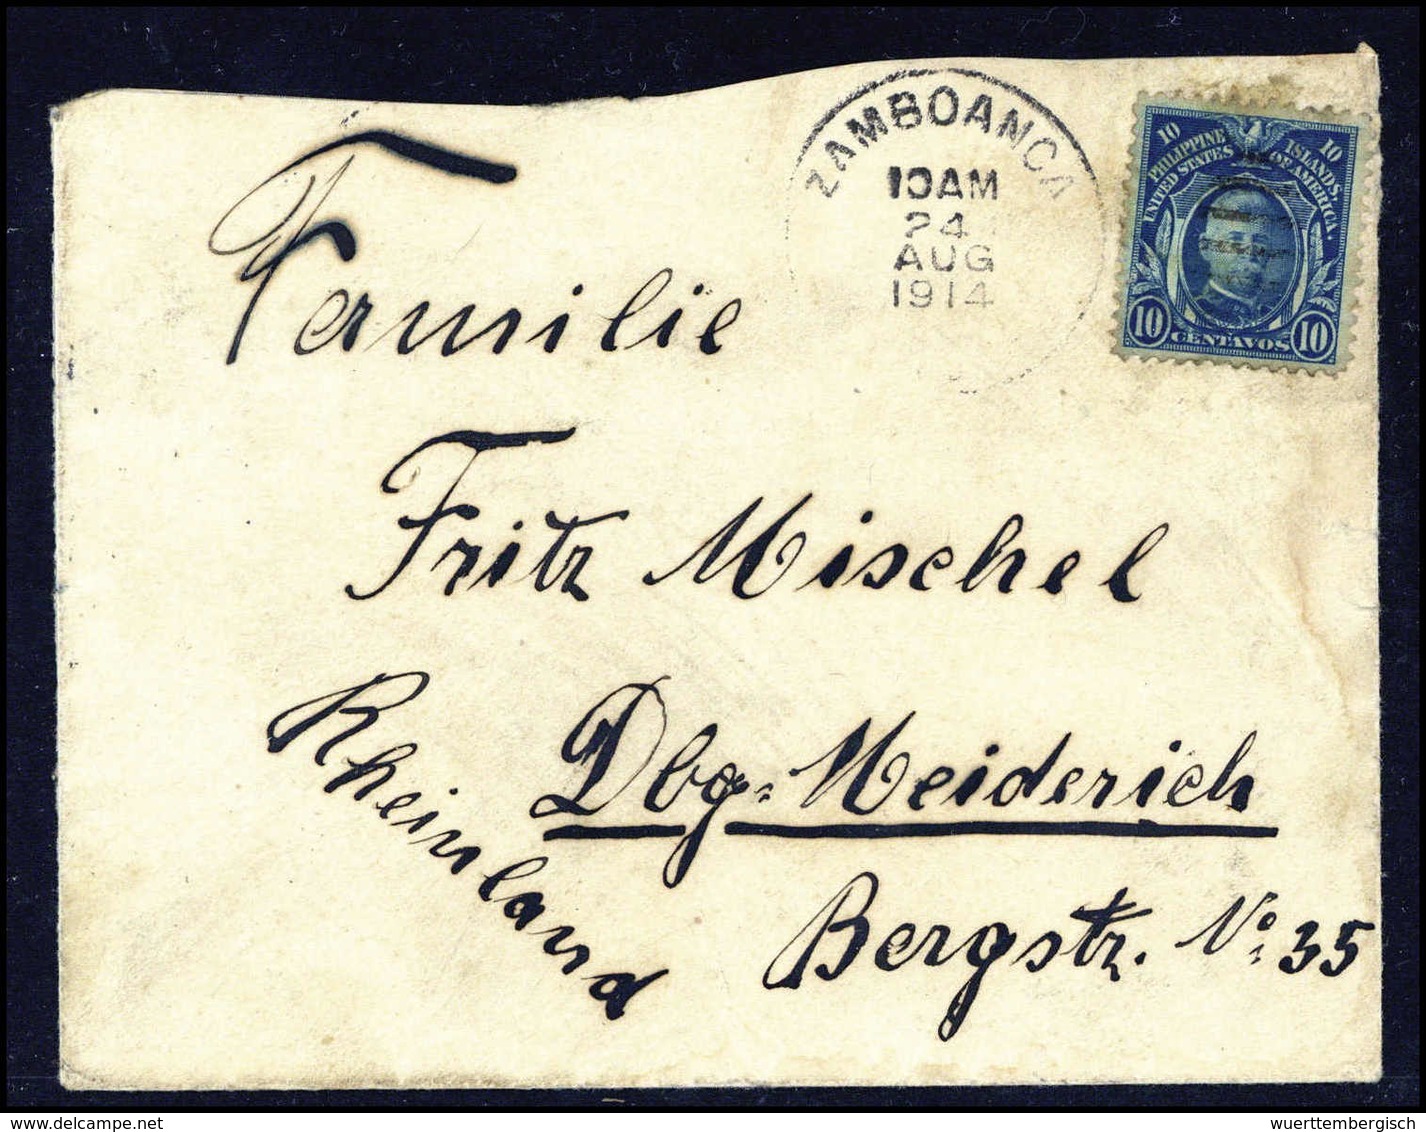 ZAMBOANGA
10AM
24
AUG
1914
10 10
PHILIPPINE ISLANDS.
UNITED STATES OF AMERICA.
10 CENTAVOS 10
Familie
Fritz Mischel
Dbg=Meiderich
Rheinland
Bergstr. No: 35
delcampe.net
wuerttembergisch